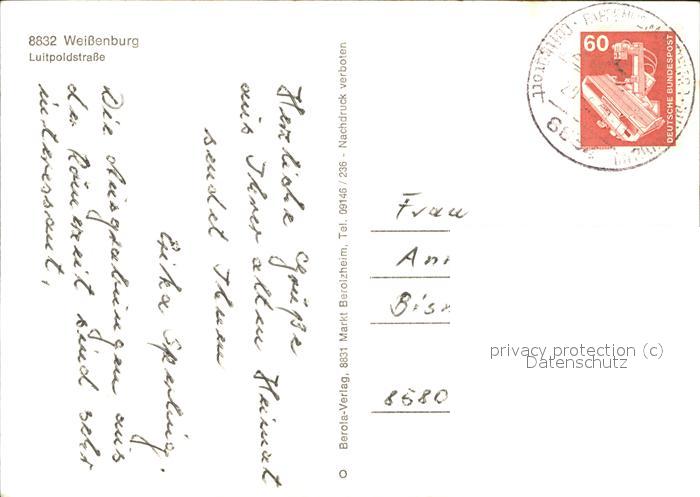 8832 Weißenburg
Luitpoldstraße
Herzliche Grüße
aus Ihrer alten Heimat
sendet Ihnen
Erika Sperling.
Die Ausgrabungen aus
der Römerzeit sind sehr
interessant.
Berola-Verlag, 8831 Markt Berolzheim, Tel. 09146 / 236 - Nachdruck verboten
60
DEUTSCHE BUNDESPOST
Frau
8580
privacy protection (c)
Datenschutz